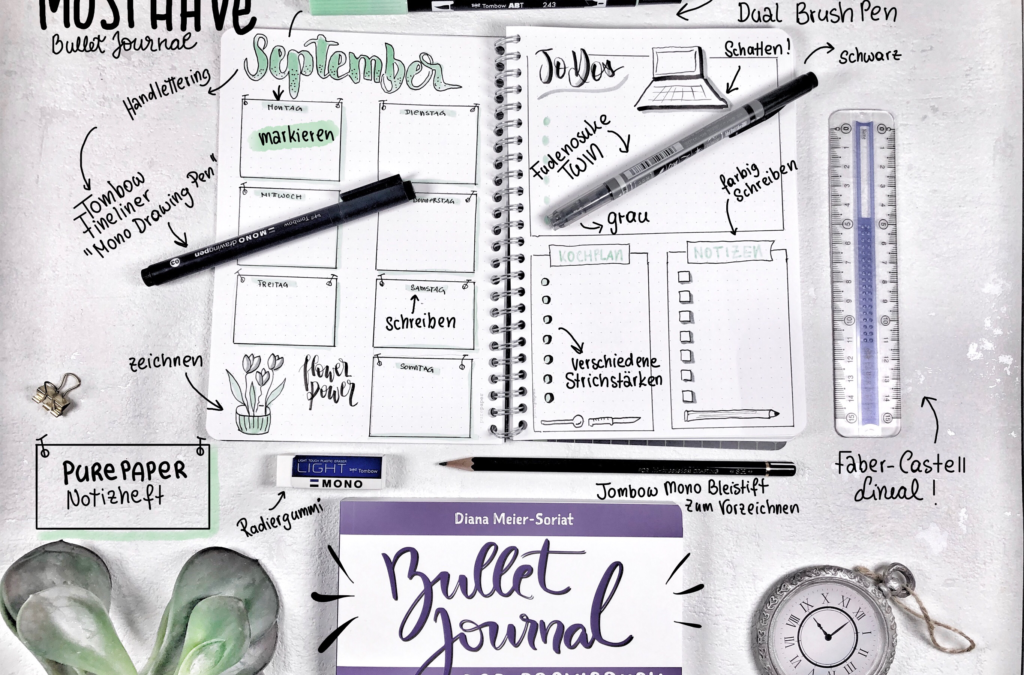 MUST HAVE
Bullet Journal
Tombow ABT 243
Dual Brush Pen
September
Handlettering
MONTAG
markieren
DIENSTAG
MITTWOCH
DONNERSTAG
FREITAG
SAMSTAG
schreiben
SONNTAG
flower
power
zeichnen
Tombow
Fineliner
"Mono Drawing Pen"
MONO drawing pen
ToDos
Schatten!
schwarz
Fudenosuke
TWIN
grau
farbig
Schreiben
KOCHPLAN
verschiedene
Strichstärken
NOTIZEN
Faber-Castell
Lineal!
PURE PAPER
Notizheft
LIGHT Tombow
MONO
Radiergummi
Tombow Mono Bleistift
zum Vorzeichnen
Diana Meier-Soriat
Bullet
Journal